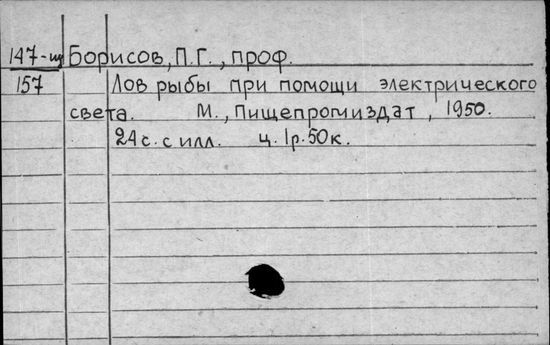 147-щ Борисов, П.Г., проф.
157 Лов рыбы при помощи электрического
света. М., Пищепромиздат, 1950.
24 с. с илл. ц. 1р. 50к.